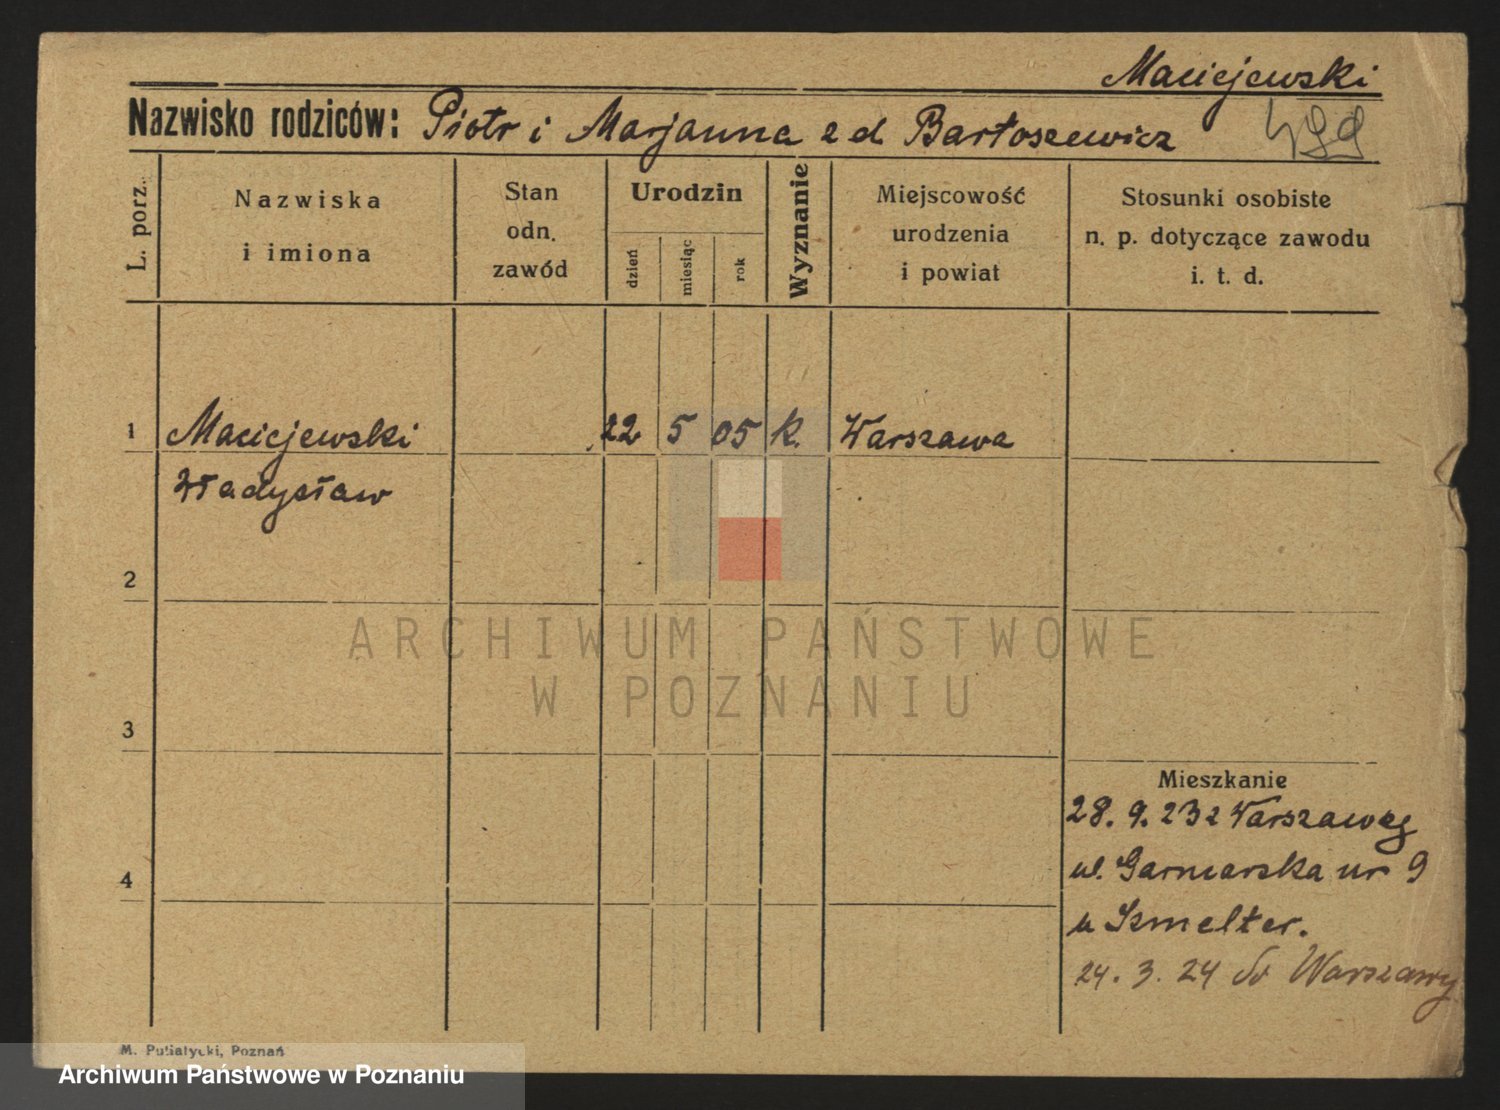 Maciejewski
Nazwisko rodziców: Piotr i Marjanna z d Bartoszewicz
499
L. porz.
Nazwiska
i imiona
Stan
odn.
zawód
Urodzin
dzień
miesiąc
rok
Wyznanie
Miejscowość
urodzenia
i powiat
Stosunki osobiste
n. p. dotyczące zawodu
i. t. d.
1 Maciejewski 22 5 05 k. Warszawa
Władysław
2
ARCHIWUM PAŃSTWOWE
W POZNANIU
3
Mieszkanie
28. 9. 23 z Warszawy
ul. Garncarska nr 9
4
u Szmelter.
24. 3. 24 do Warszawy
M. Putiatycki, Poznań
Archiwum Państwowe w Poznaniu